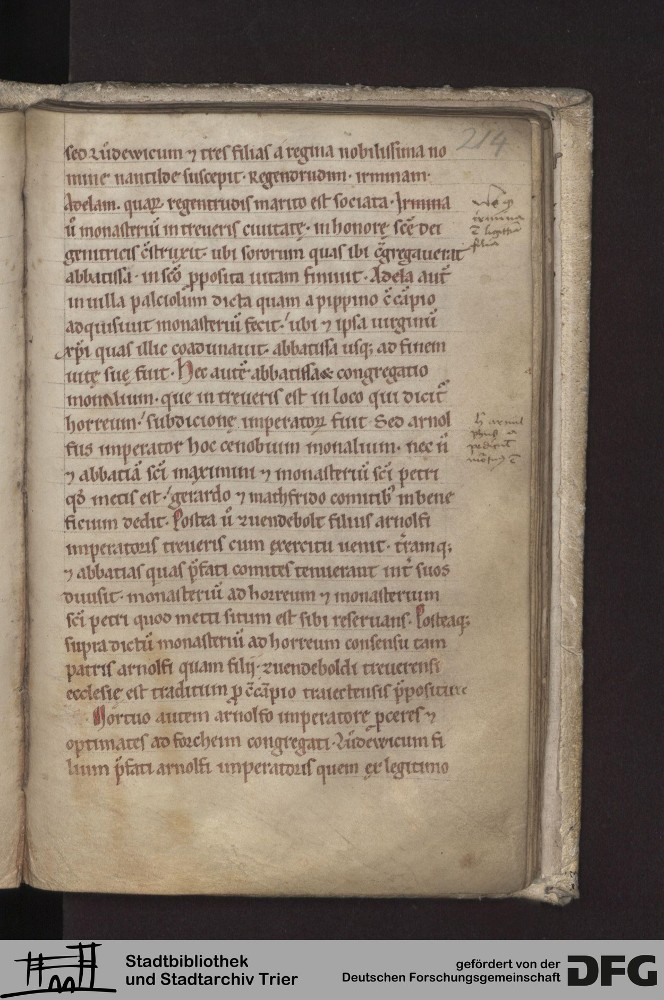 214
sed Lúdewicum ⁊ tres filias a regina nobilissima no
mine nantilde suscepit. Regendrudim. irminam.
Adelam. quaꝝ regentrudis marito est sociata. Irmina
ů monasteriū in treueris ciuitatę. in honorę scē dei
genitricis c̄struxit. ubi sororum quas ibi c̄gregauerat
abbatissa. in scō p̱posito uitam finiuit. Adela aut̄
in uilla palciolum dicta quam a pippino c̄cāpio
adquisiuit monasteriū fecit. ubi ⁊ ipsa uirginū
xp̄i quas illic coadunauit. abbatissa usq; ad finem
uitę suę fuit. Hec autē abbatissa & congregatio
monialium. que in treueris est in loco qui dicit̄
horreum. subdicionę imperatoꝝ fuit. Sed arnol
fus imperator hoc cenobium monialium. nec ñ
⁊ abbatiā sc̄i maximini ⁊ monasteriū sc̄i petri
qđ metis est. gerardo ⁊ mathfrido comitib; in bene
ficium dedit. Postea ů zuendebolt filius arnolfi
imperatoris treueris cum exercitu uenit. t̄ramq;
⁊ abbatias quas p̄fati comites tenuerant int̄ suos
diuisit. monasteriū ad horreum ⁊ monasterium
sc̄i petri quod metti situm est sibi reseruans. Posteaq;
supra dictū monasteriū ad horreum consensu tam
patris arnolfi quam filij. zuendeboldi treuerensi
ecclesię est traditum ꝑ c̄cāpio traiectensis p̄positurę
Mortuo autem arnolfo imperatorę p̱ceres ⁊
optimates ad forcheim congregati. Lúdewicum fi
lium p̄fati arnolfi imperatoris quem ex legitimo
Stadtbibliothek
und Stadtarchiv Trier
gefördert von der
Deutschen Forschungsgemeinschaft
DFG